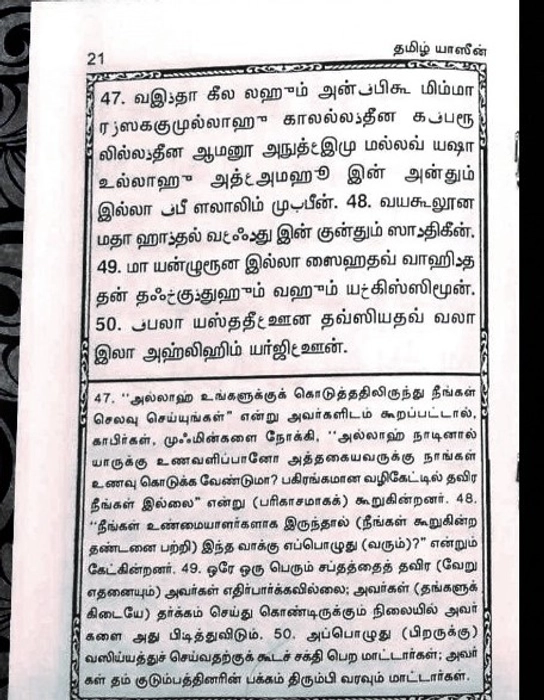 21
தமிழ் யாஸீன்
47. வஇدதா கீல லஹும் அன்فபிகூ மிம்மா
ரزஸககுமுல்லாஹு காலல்லدதீன கفபரூ
லில்லدதீன ஆமனூ அநுத்عஇமு மல்லவ் யஷா
உல்லாஹு அத்عஅமஹூ இன் அன்தும்
இல்லா فபீ ளலாலிம் முبபீன். 48. வயகூலூன
மதா ஹாدதல் வعஃدது இன் குன்தும் ஸாدதிகீன்.
49. மா யன்ழுரூன இல்லா ஸைஹதவ் வாஹிدத
தன் தஃخகுدதுஹும் வஹும் யخகிஸ்ஸிமூன்.
50. فபலா யஸ்ததீعஊன தவ்ஸியதவ் வலா
இலா அஹ்லிஹிம் யர்ஜிعஊன்.
47. “அல்லாஹ் உங்களுக்குக் கொடுத்ததிலிருந்து நீங்கள்
செலவு செய்யுங்கள்” என்று அவர்களிடம் கூறப்பட்டால்,
காபிர்கள், முஃமின்களை நோக்கி, “அல்லாஹ் நாடினால்
யாருக்கு உணவளிப்பானோ அத்தகையவருக்கு நாங்கள்
உணவு கொடுக்க வேண்டுமா? பகிரங்கமான வழிகேட்டில் தவிர
நீங்கள் இல்லை” என்று (பரிகாசமாகக்) கூறுகின்றனர். 48.
“நீங்கள் உண்மையாளர்களாக இருந்தால் (நீங்கள் கூறுகின்ற
தண்டனை பற்றி) இந்த வாக்கு எப்பொழுது (வரும்)?” என்றும்
கேட்கின்றனர். 49. ஒரே ஒரு பெரும் சப்தத்தைத் தவிர (வேறு
எதனையும்) அவர்கள் எதிர்பார்க்கவில்லை; அவர்கள் (தங்களுக்
கிடையே) தர்க்கம் செய்து கொண்டிருக்கும் நிலையில் அவர்
களை அது பிடித்துவிடும். 50. அப்பொழுது (பிறருக்கு)
வஸிய்யத்துச் செய்வதற்குக் கூடச் சக்தி பெற மாட்டார்கள்; அவர்
கள் தம் குடும்பத்தினரின் பக்கம் திரும்பி வரவும் மாட்டார்கள்.